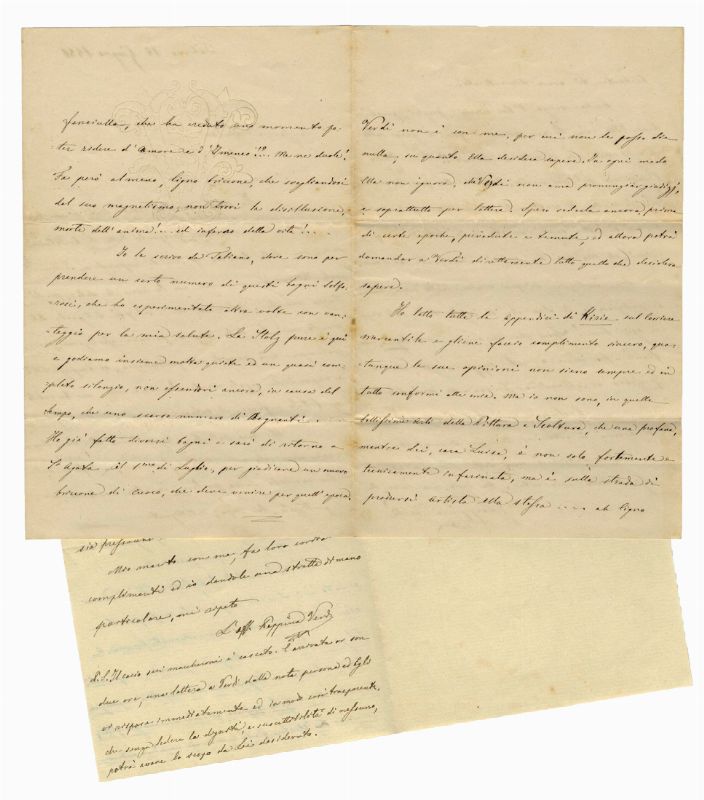 fanciulla, che ha creduto un momento po-
ter ridere d'Amore e d'Imeneo!!. Me ne duole!
Sa però almeno, che svegliandosi
dal suo magnetismo, non trovi la disillusione,
morte dell'anima!.. ed inferno della vita!...
Io le scrivo da Tabiano, dove sono per
prendere un certo numero di questi bagni solfo-
rosi, che ho esperimentato altre volte con van-
taggio per la mia salute. La Stolz pure è qui
e godiamo insieme molta quiete ed un quasi com-
pleto silenzio, non essendovi ancora, in causa del
tempo, che uno scarso numero di Bagnanti..
Ho già fatto diversi bagni e sarò di ritorno a
St Agata il 1mo di Luglio, per giudicare un nuovo
briccone di Cuoco, che deve venire per quell'epoca.
Verdi non è con me, per cui non le posso dir
nulla, su quanto Ella desidera sapere. In ogni modo
Ella non ignora, che Verdi non ama pronunziar giudizj,
e soprattutto per lettera. Spero vederla ancora, prima
di certe epoche, prevedute e temute, ed allora potrà
domandar a Verdi tutto quello che desidera
sapere.
Ho letto tutte le appendici di sul Corriere
mercantile e gliene faccio complimento sincero, quan-
tunque le sue opinioni non sieno sempre ed in
tutto conformi alle mie. Ma io non sono, in quelle
bellissime arti della Pittura e Scoltura, che una profana,
mentre Lei, cara Luisa, è non solo fortemente e
tecnicamente infarinata, ma è sulla strada di
prodursi artista Ella stessa .... ah
Mio marito con me, fa loro cordiali
complimenti ed io dandole una stretta di mano
particolare, mi ripeto
L'aff. Peppina Verdi
P.S. Il cacio sui maccheroni è cascato. È arrivata or son
due ore, una lettera a Verdi dalla nota persona ed Egli
vi rispose immediatamente ed in modo così trasparente,
che senza ledere la dignità, e suscettibilità di nessuno,
potrà avere lo scopo da Lei desiderato.